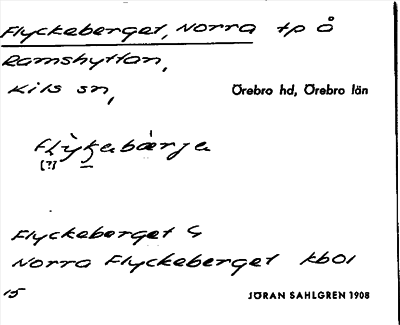 Flyckeberget, Norra tp å
Ramshyttan,
Kils sn,
Örebro hd, Örebro län
[?]
Flyckeberget G
Norra Flyckeberget kbol
15
JÖRAN SAHLGREN 1908